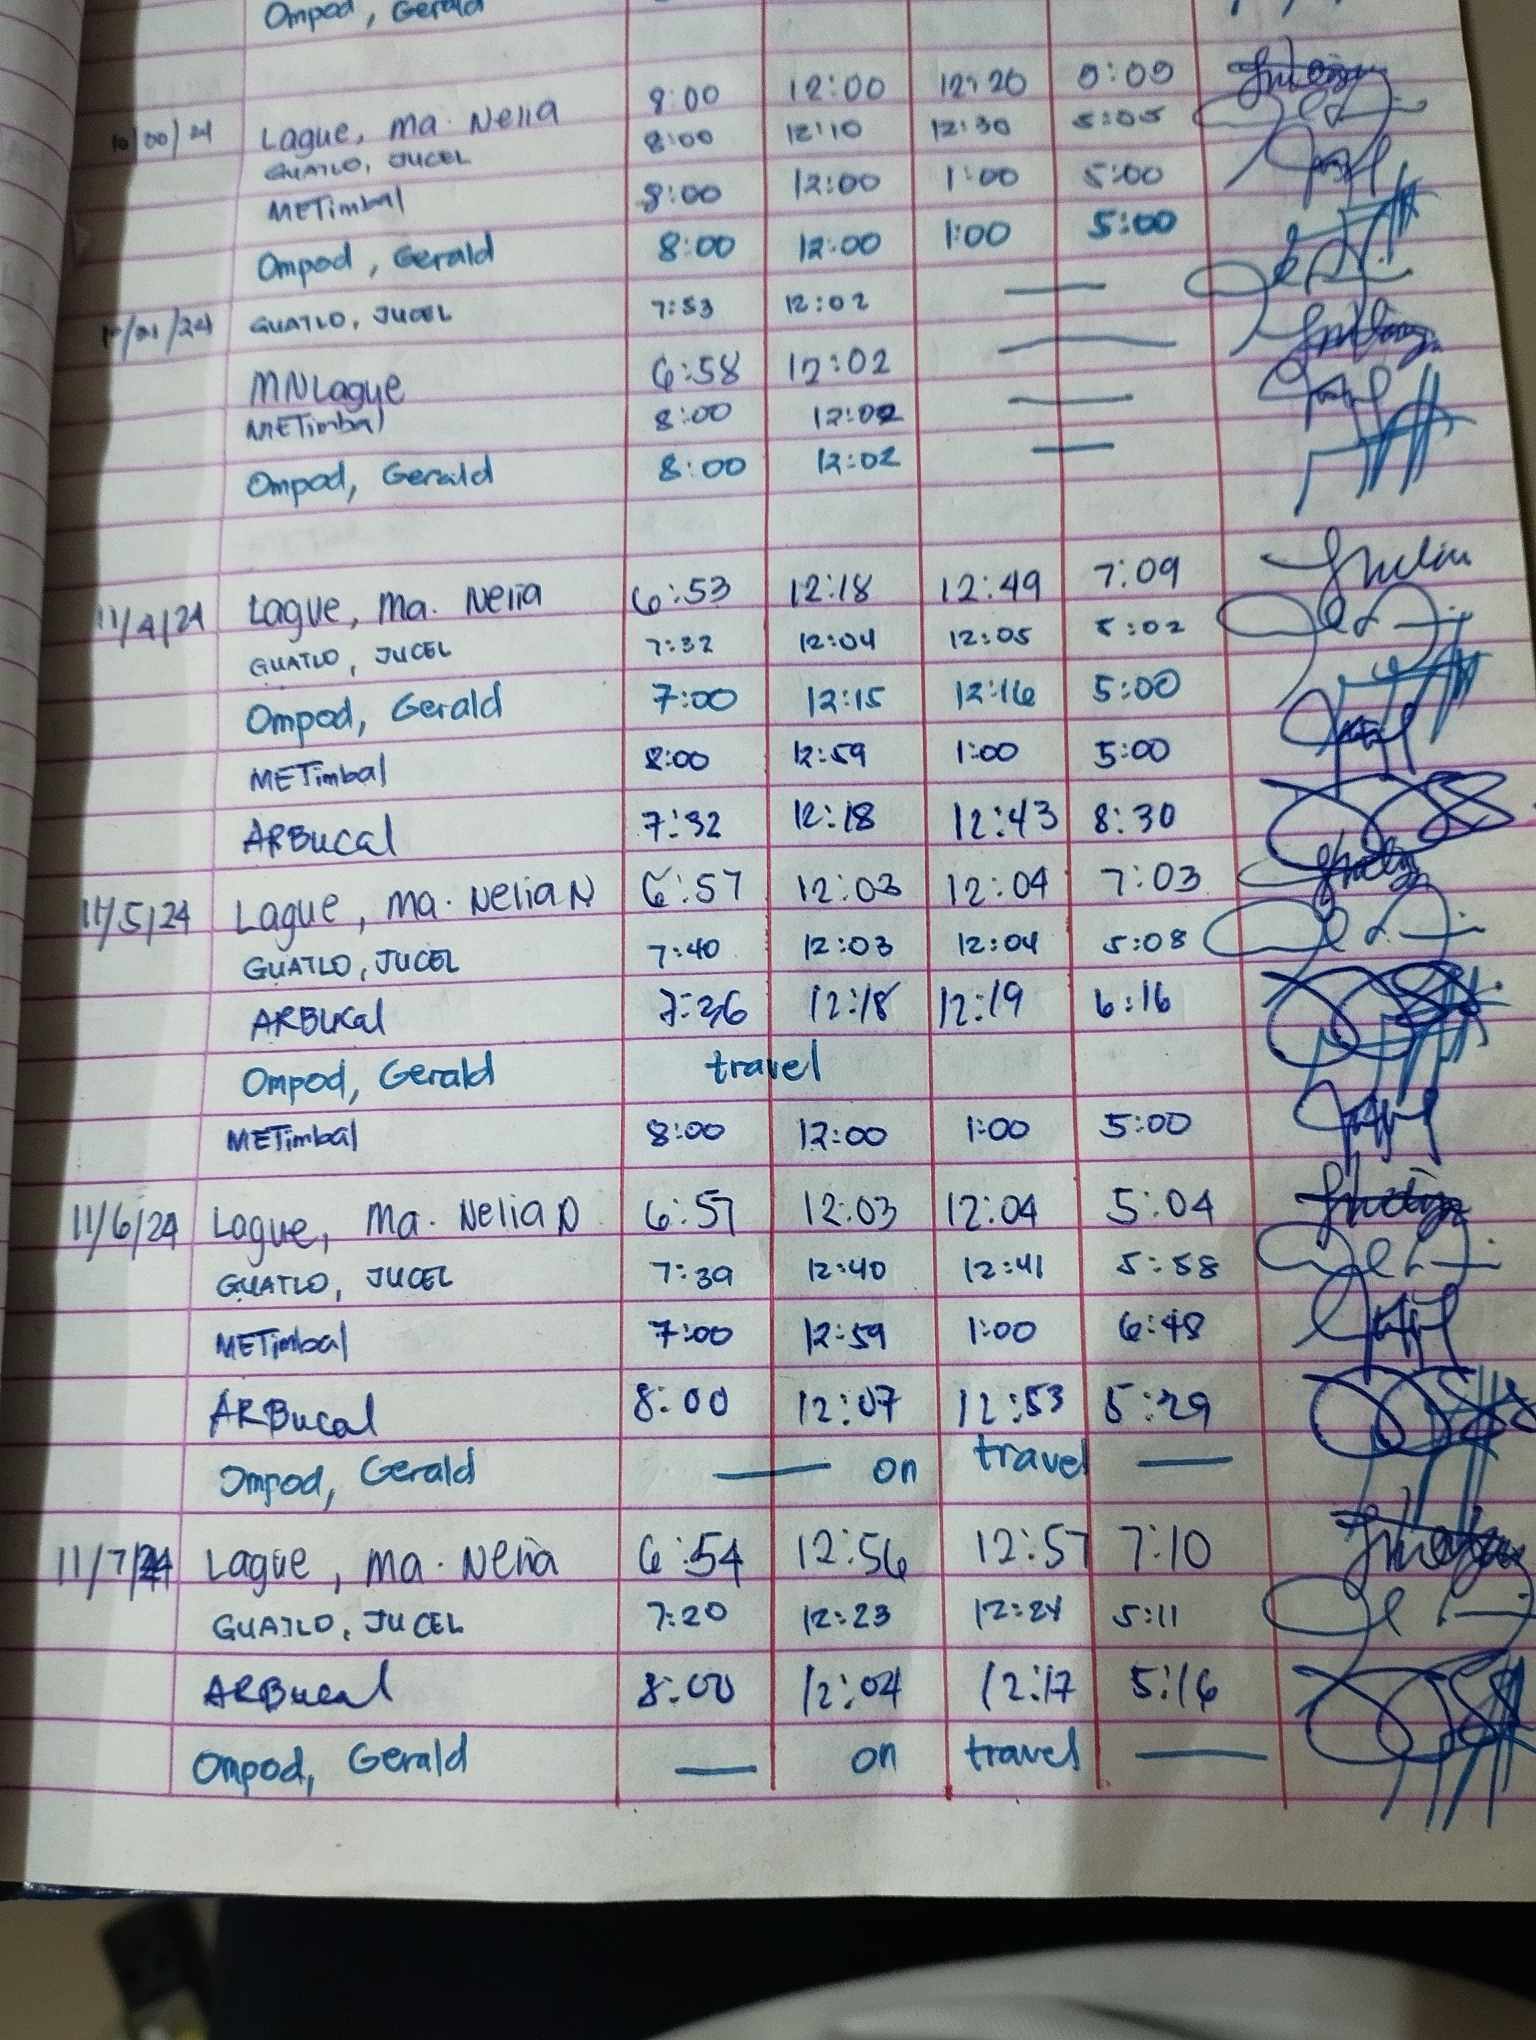 Ompod, Gerald
10/00/24 Lague, Ma. Nelia 8:00 12:00 12:20 5:00
GUATLO, JUCEL 8:00 12:10 12:30 5:05
METimbal 8:00 12:00 1:00 5:00
Ompod, Gerald 8:00 12:00 1:00 5:00
GUATLO, JUCEL 7:53 12:02 —
MNLague 6:58 12:02 —
METimbal 8:00 12:02 —
Ompod, Gerald 8:00 12:02 —
11/4/24 Lague, Ma. Nelia 6:53 12:18 12:49 7:09
GUATLO, JUCEL 7:32 12:04 12:05 5:02
Ompod, Gerald 7:00 12:15 12:16 5:00
METimbal 8:00 12:59 1:00 5:00
ARBucal 7:32 12:18 12:43 8:30
11/5/24 Lague, Ma. Nelia N 6:57 12:03 12:04 7:03
GUATLO, JUCEL 7:40 12:03 12:04 5:08
ARBucal 7:36 12:18 12:19 6:16
Ompod, Gerald travel
METimbal 8:00 12:00 1:00 5:00
11/6/24 Lague, Ma. Nelia N 6:57 12:03 12:04 5:04
GUATLO, JUCEL 7:39 12:40 12:41 5:58
METimbal 7:00 12:59 1:00 6:48
ARBucal 8:00 12:07 12:53 5:29
Ompod, Gerald — on travel —
11/7/24 Lague, Ma. Nelia 6:54 12:56 12:57 7:10
GUATLO, JUCEL 7:20 12:23 12:24 5:11
ARBucal 8:00 12:04 12:17 5:16
Ompod, Gerald — on travel —